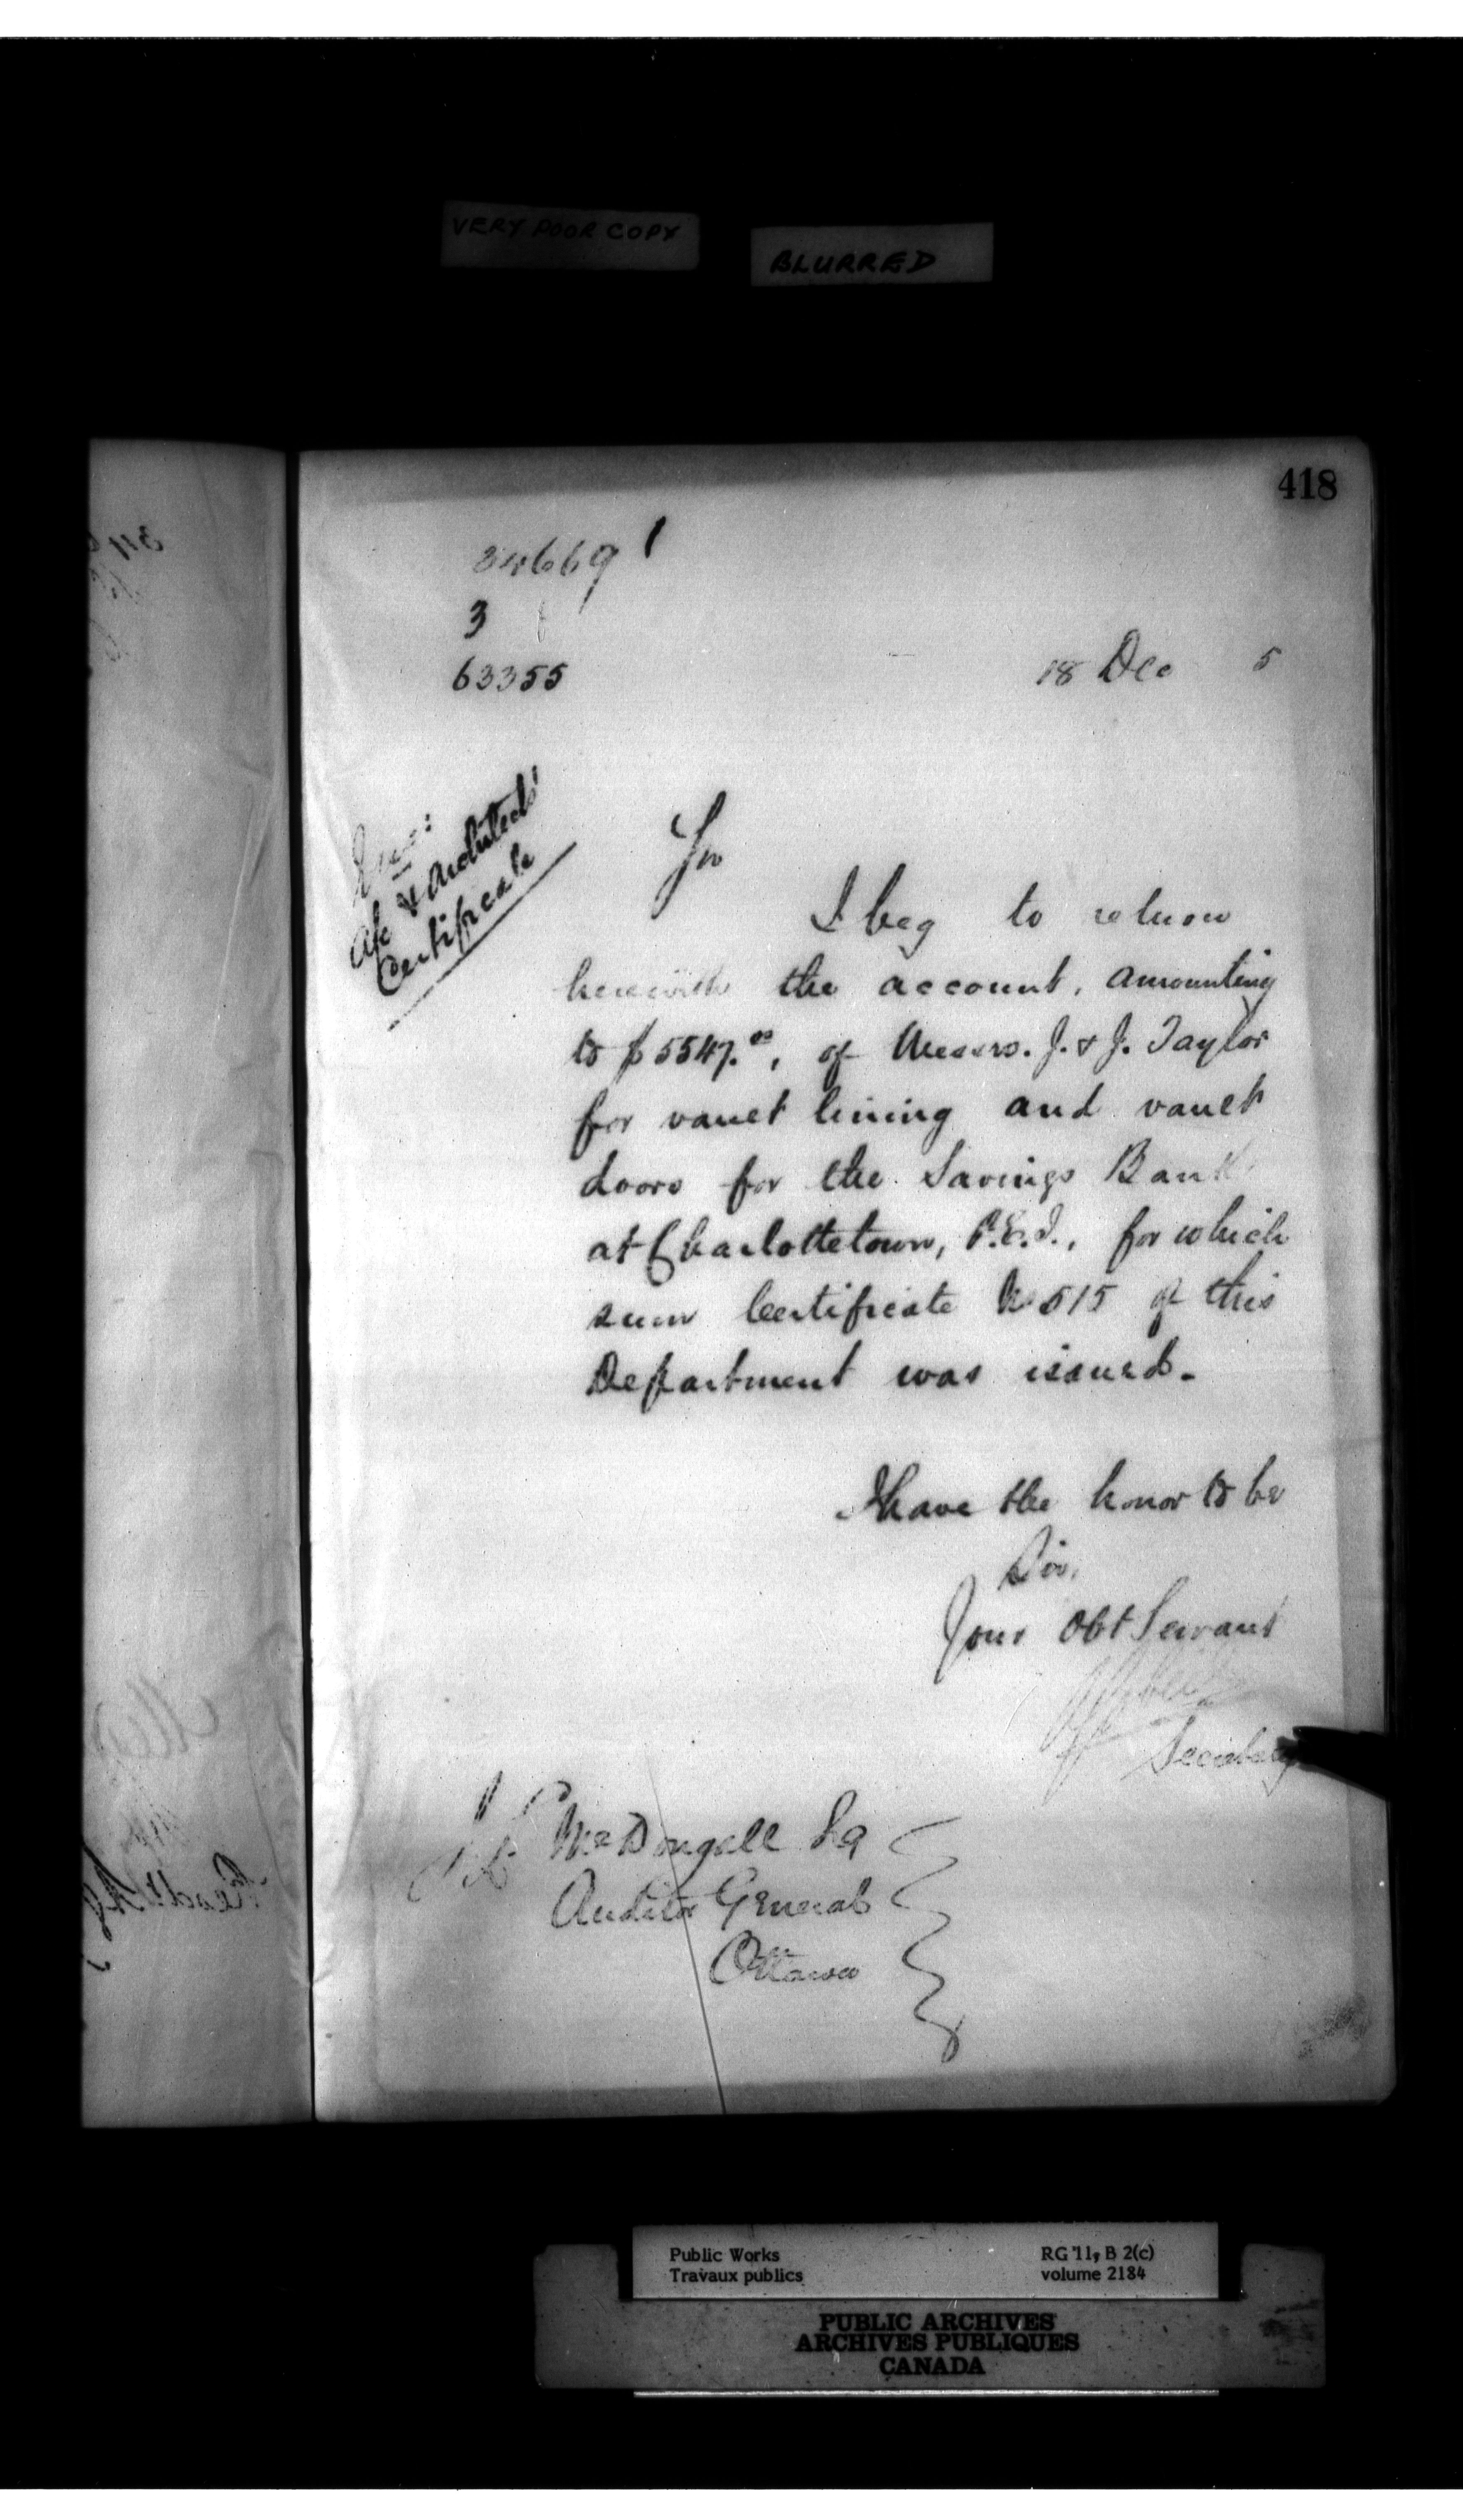 VERY POOR COPY
BLURRED
418
34669
3
63355
18 Dec 5
a/c & Architects'
Certificate
Sir
I beg to return
herewith the account, amounting
to $5547.00, of Messrs. J. & J. Taylor
for vault lining and vault
doors for the Savings Bank
at Charlottetown, P.E.I., for which
sum Certificate No 515 of this
Department was issued.
I have the honor to be
Sir,
Your Obt Servant
Secretary
McDougall Sq
Auditor General
Ottawa
Public Works
Travaux publics
RG 11, B 2(c)
volume 2184
PUBLIC ARCHIVES
ARCHIVES PUBLIQUES
CANADA